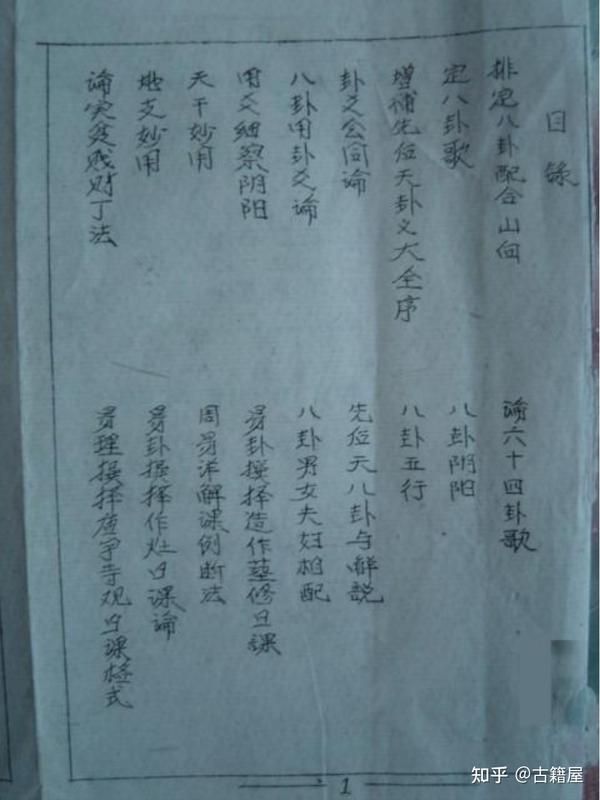 目錄
排定八卦配合山向
論六十四卦歌
定八卦歌
八卦阴阳
增補先位天卦爻大全序
八卦五行
卦爻公同論
先位天八卦与解說
八卦用卦爻論
八卦男女夫妇相配
用爻細察阴阳
易卦撰择造作葬修日课
天干妙用
周易详解课例断法
地支妙用
易卦撰择作灶日课論
論贫贱财丁法
易理撰择庙宇寺观日课格式
1
知乎 @古籍屋